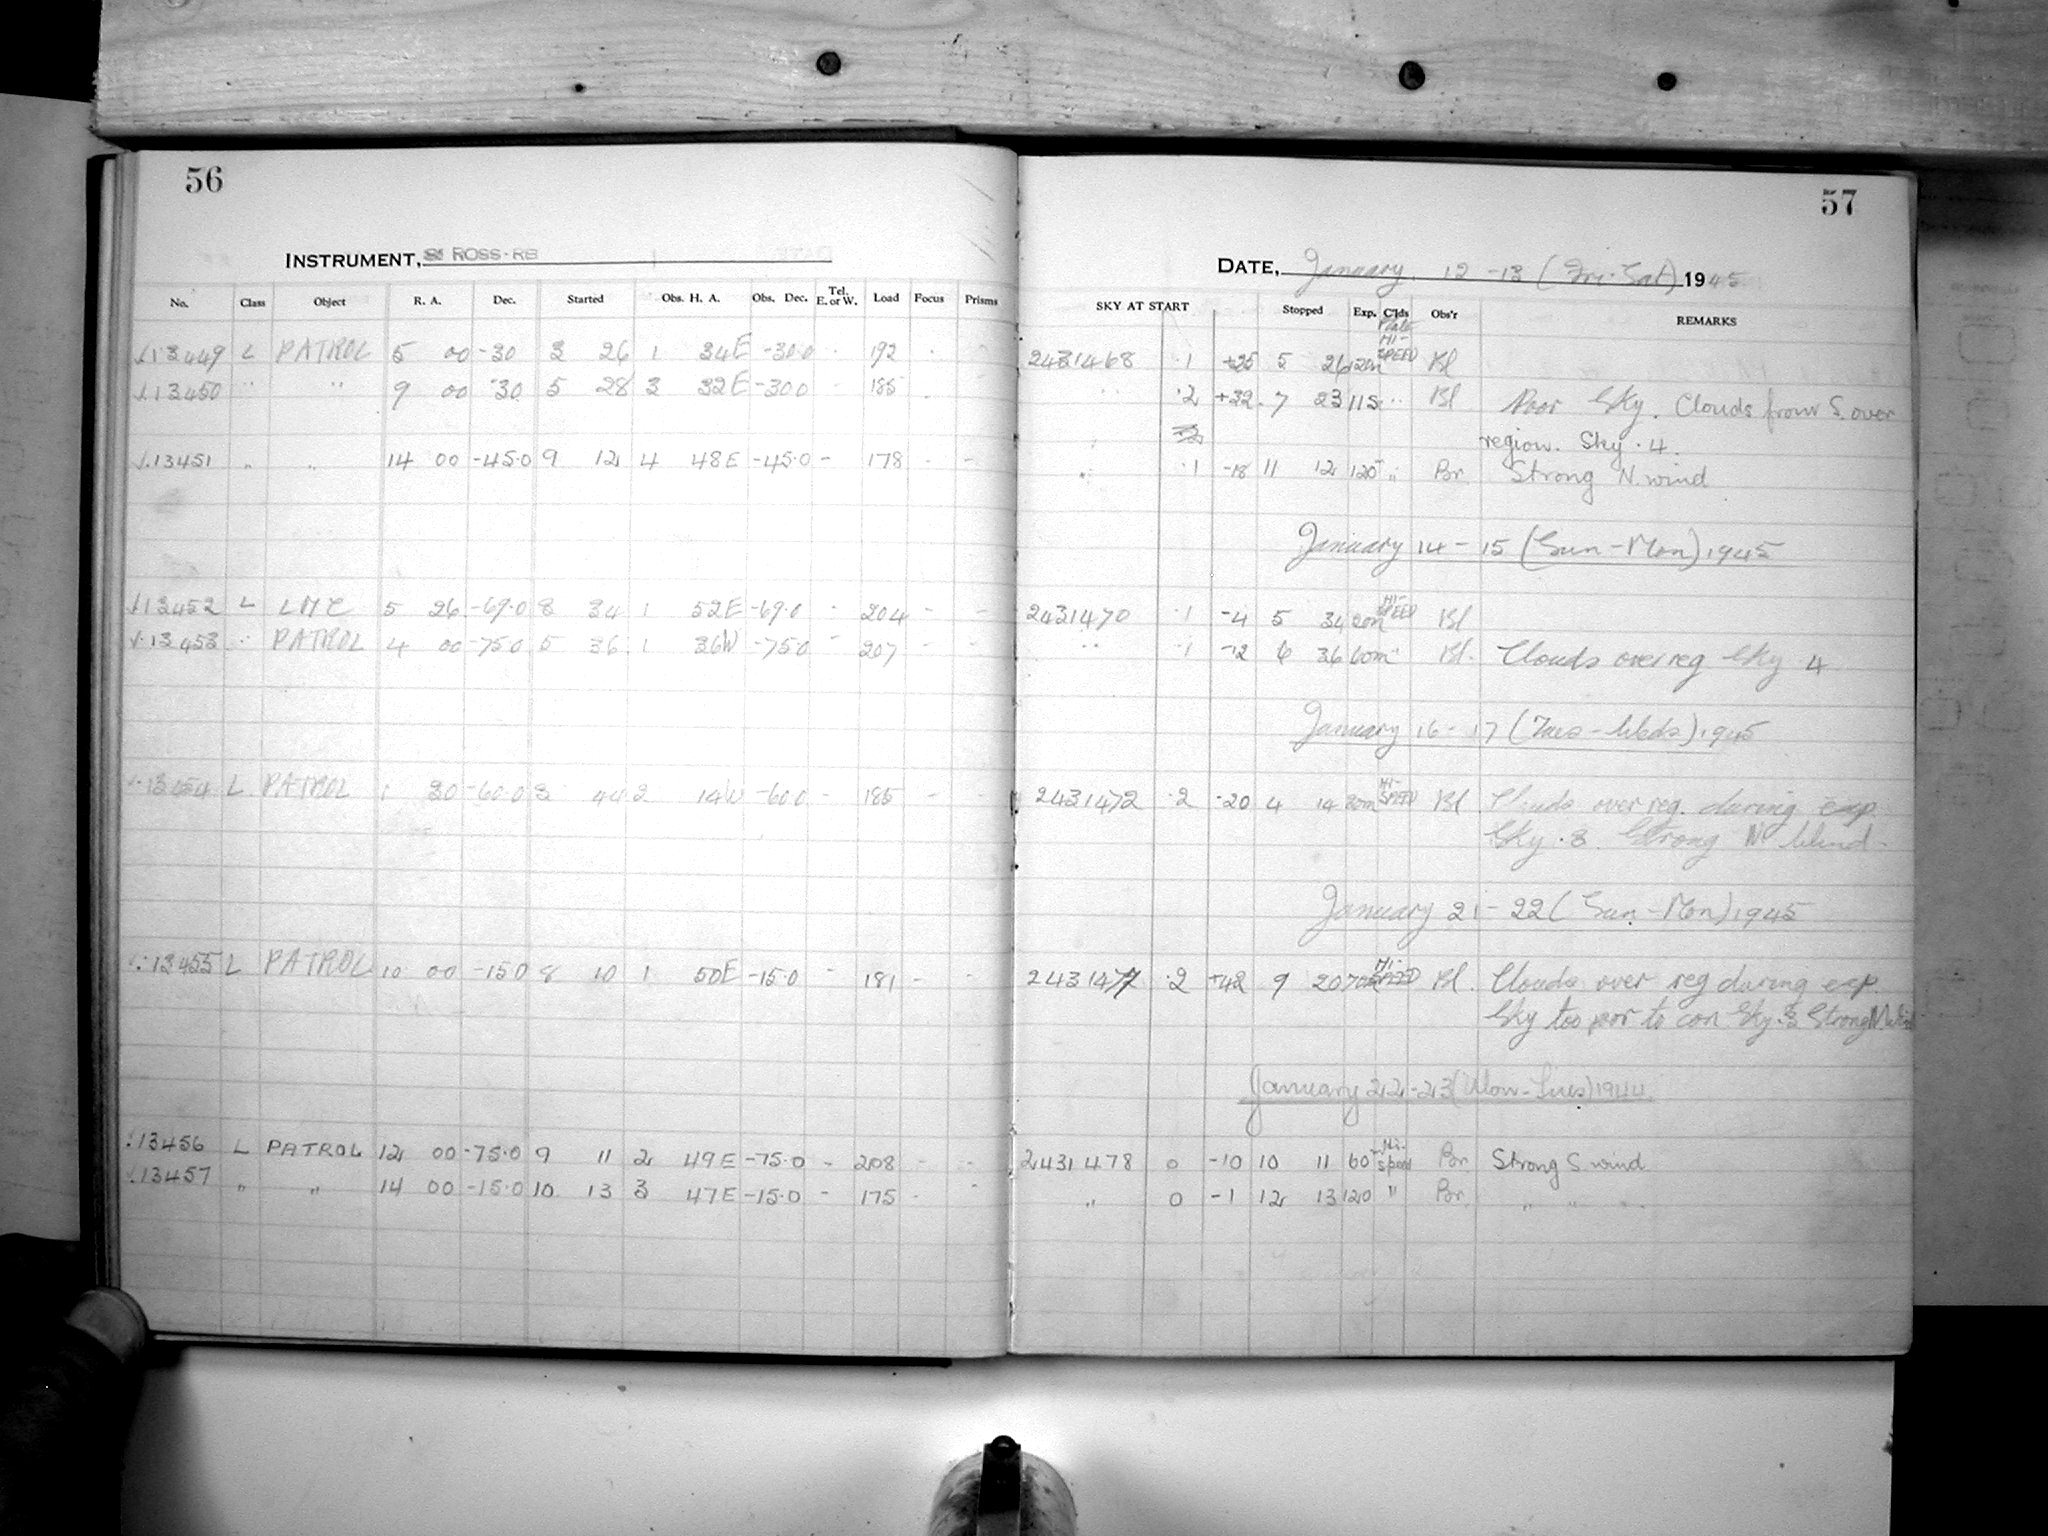 56
INSTRUMENT, ROSS-RB
No. Class Object R. A. Dec. Started Obs. H. A. Obs. Dec. Tel. E. or W. Load Focus Prisms
√13449 L PATROL 5 00 -30 3 26 1 34E -30.0 - 192
√13450 " " 9 00 -30 5 28 3 32E -30.0 - 185
√13451 " " 14 00 -45.0 9 12 4 48E -45.0 - 178 - -
√13452 L LMC 5 26 -69.0 3 34 1 52E -69.0 - 204 - -
√13453 " PATROL 4 00 -75.0 5 36 1 36W -75.0 - 207 - -
√13454 L PATROL 1 30 -60.0 3 44 2 14W -60.0 - 185 - -
√13455 L PATROL 10 00 -15.0 8 10 1 50E -15.0 - 181 - -
√13456 L PATROL 12 00 -75.0 9 11 2 49E -75.0 - 208 - -
√13457 " " 14 00 -15.0 10 13 3 47E -15.0 - 175 - -
57
DATE, January 12-13 (Fri-Sat) 1945
SKY AT START Stopped Exp. C'lds Obs'r REMARKS
Plate
2431468 .1 +25 5 26 120m HI-SPEED Bl
" .2 +32 7 23 115 " Bl Poor Sky. Clouds from S. over
region. Sky .4.
" .1 -18 11 12 120 " Br Strong N. wind
January 14-15 (Sun-Mon) 1945
2431470 .1 -4 5 34 120m HI-SPEED Bl
" .1 -12 6 36 60m " Bl. Clouds over reg Sky 4
January 16-17 (Tues-Weds) 1945
2431472 .2 -20 4 14 30m HI-SPEED Bl Clouds over reg. during exp
Sky .8. Strong N Wind.
January 21-22 (Sun-Mon) 1945
2431477 .2 +42 9 20 70m HI-SPEED Bl. Clouds over reg during exp.
Sky too poor to con Sky .8 Strong N Wind
January 22-23 (Mon-Tues) 1944
2431478 0 -10 10 11 60 Hi-Speed Br Strong S wind
" 0 -1 12 13 120 " Br " " "